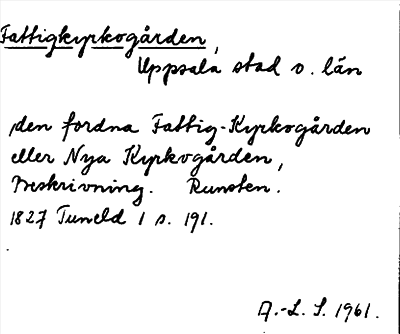 Fattigkyrkogården,
Uppsala stad o. län
den fordna Fattig-Kyrkogården
eller Nya Kyrkogården,
Beskrivning. Runsten.
1827 Tuneld 1 s. 191.
A.-L. S. 1961.